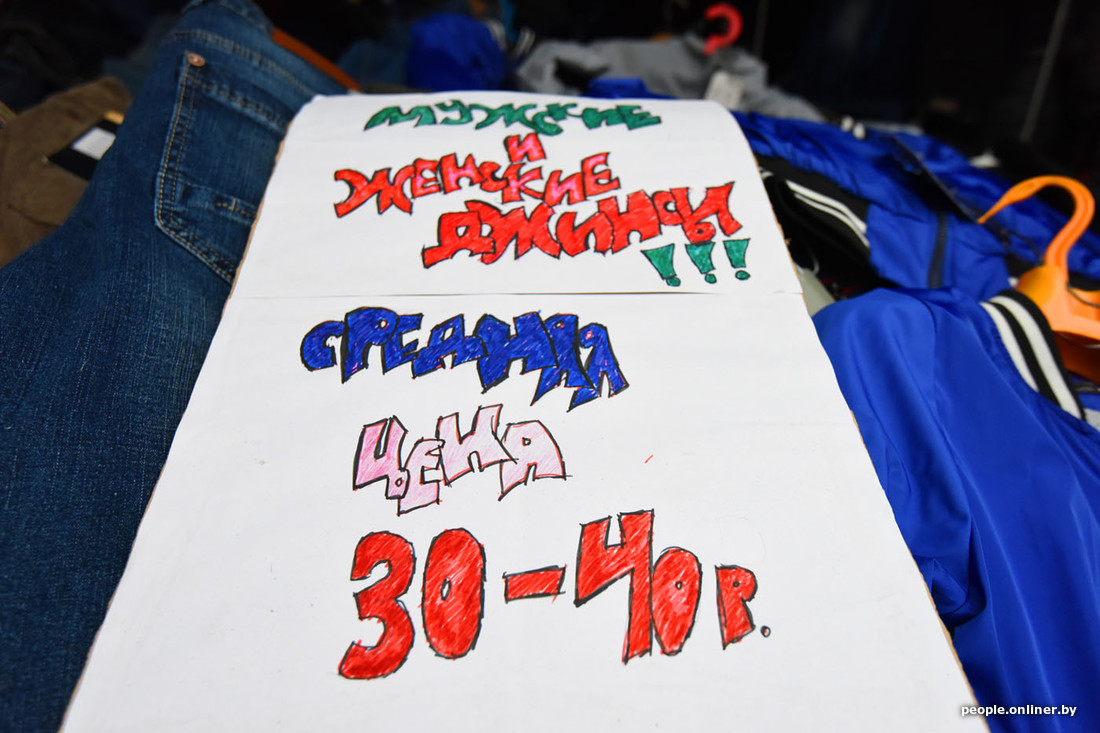 МУЖСКИЕ
И
ЖЕНСКИЕ
ДЖИНСЫ
!!!
СРЕДНЯЯ
ЦЕНА
30-40 Р.
people.onliner.by